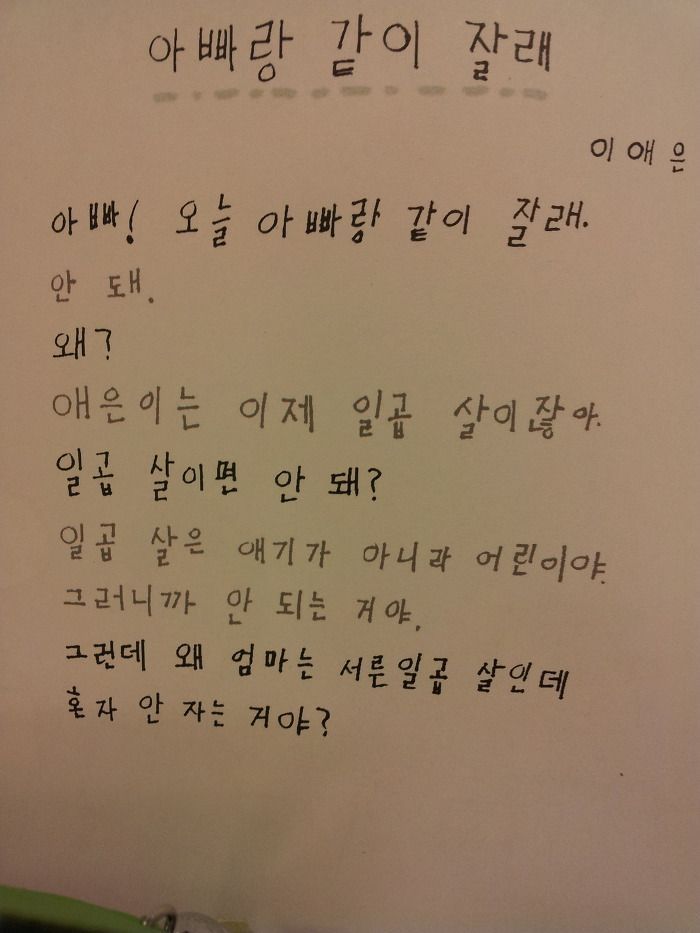 아빠랑 같이 잘래
이애은
아빠! 오늘 아빠랑 같이 잘래.
안 돼.
왜?
애은이는 이제 일곱 살이잖아.
일곱 살이면 안 돼?
일곱 살은 애기가 아니라 어린이야.
그러니까 안 되는 거야.
그런데 왜 엄마는 서른일곱 살인데
혼자 안 자는 거야?